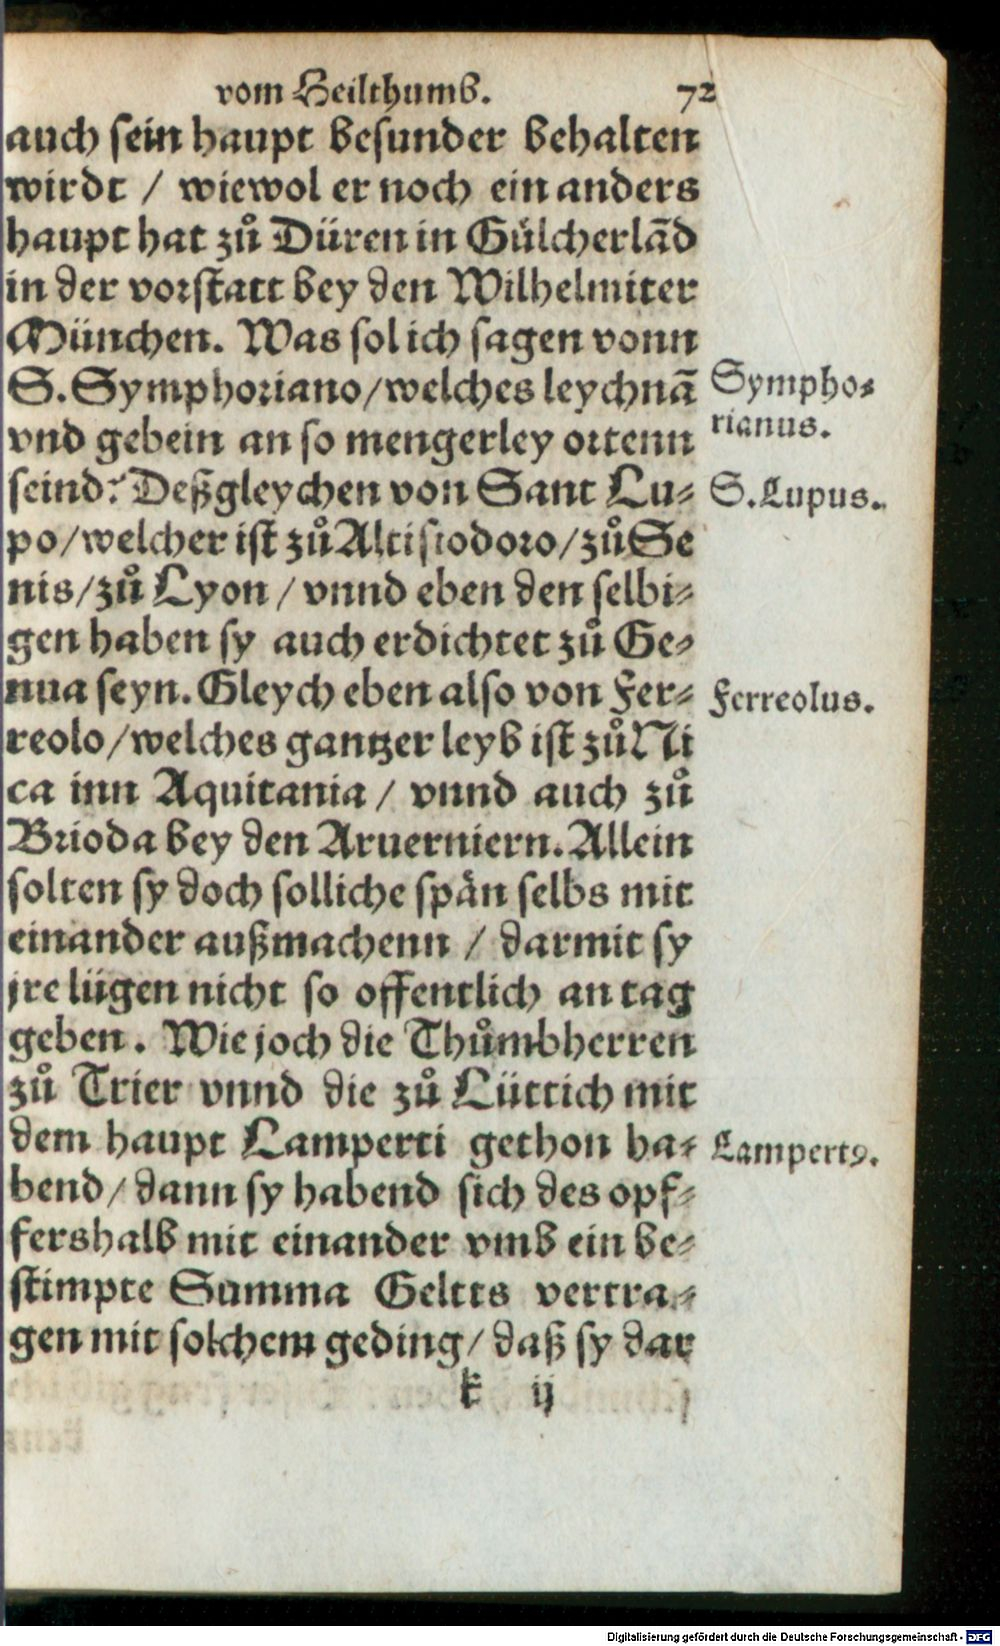 vom Heilthumb. 72
auch sein haupt besunder behalten
wirdt / wiewol er noch ein anders
haupt hat zů Düren in Gülcherlād
in der vorstatt bey den Wilhelmiter
München. Was sol ich sagen vonn
S. Symphoriano/welches leychnā
vnd gebein an so mengerley ortenn
seind? Deßgleychen von Sant Lu-
po/welcher ist zů Altisiodoro/zů Se
nis/zů Lyon / vnnd eben den selbi-
gen haben sy auch erdichtet zů Ge-
nua seyn. Gleych eben also von Fer-
reolo/welches gantzer leyb ist zů Ni
ca inn Aquitania / vnnd auch zů
Brioda bey den Aruerniern. Allein
solten sy doch solliche spän selbs mit
einander außmachenn / darmit sy
jre lügen nicht so offentlich an tag
geben. Wie joch die Thůmbherren
zů Trier vnnd die zů Lüttich mit
dem haupt Lamperti gethon ha-
bend/ dann sy habend sich des opf-
fershalb mit einander vmb ein be-
stimpte Summa Geltts vertra-
gen mit solchem geding/ daß sy dar
k ij
Sympho-
rianus.
S. Lupus.
Ferreolus.
Lampertꝰ.
Digitalisierung gefördert durch die Deutsche Forschungsgemeinschaft - DFG